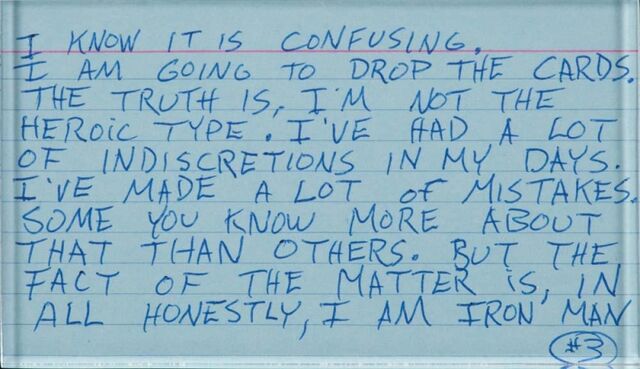 I KNOW IT IS CONFUSING.
I AM GOING TO DROP THE CARDS.
THE TRUTH IS, I'M NOT THE
HEROIC TYPE. I'VE HAD A LOT
OF INDISCRETIONS IN MY DAYS.
I'VE MADE A LOT OF MISTAKES.
SOME YOU KNOW MORE ABOUT
THAT THAN OTHERS. BUT THE
FACT OF THE MATTER IS, IN
ALL HONESTLY, I AM IRON MAN
#3